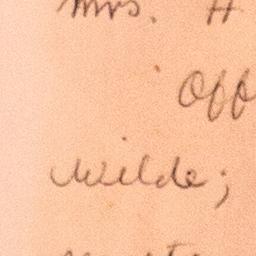 Mrs. H
Off
Wilde;